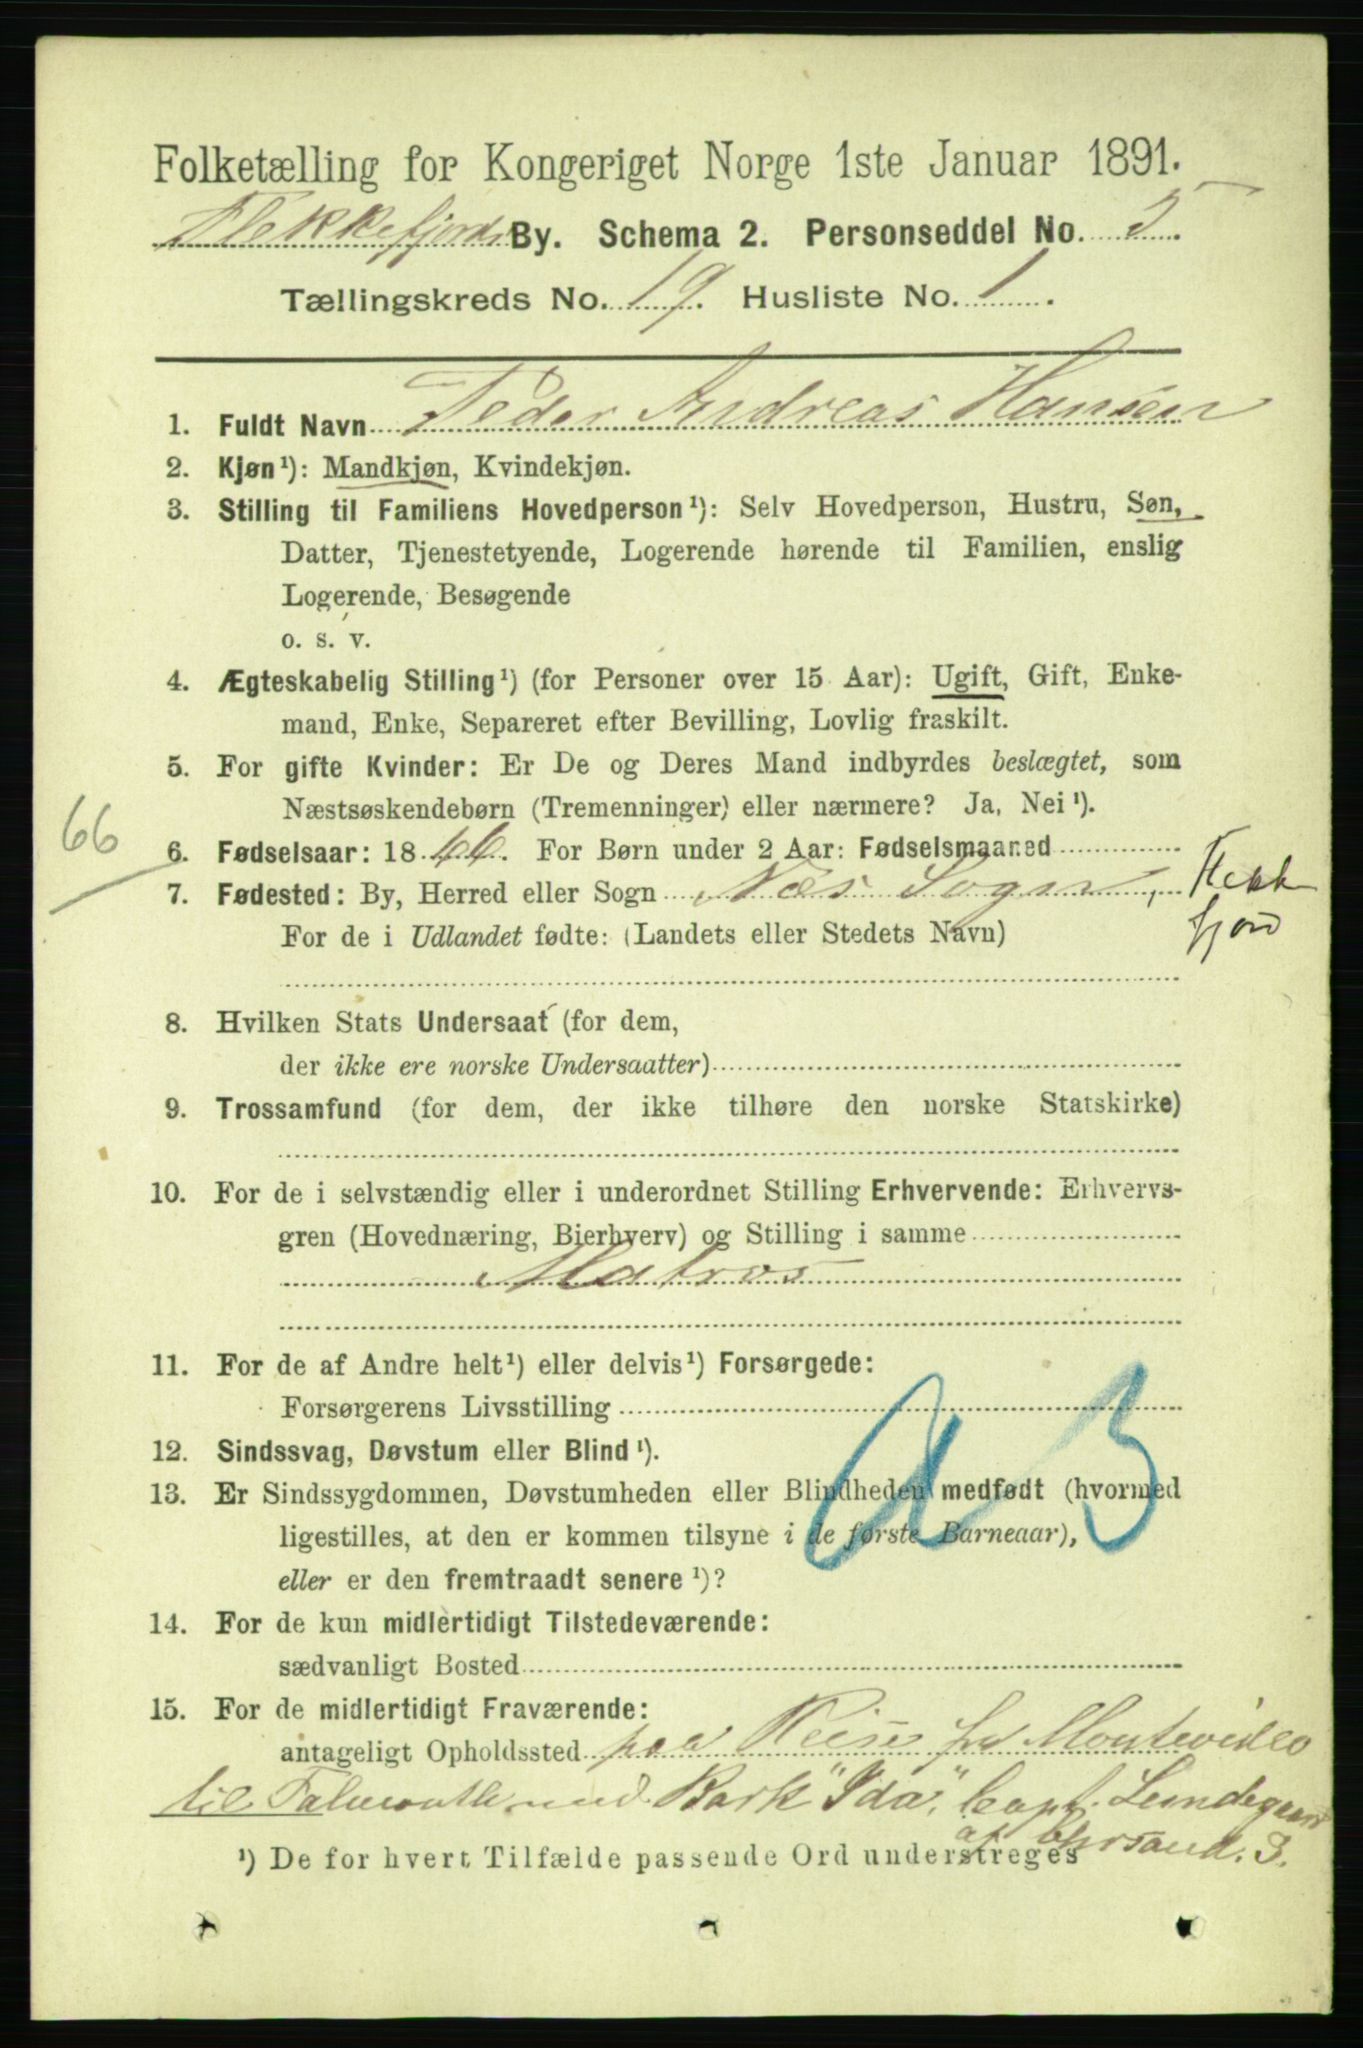 Folketælling for Kongeriget Norge 1ste Januar 1891.
Flekkefjords By. Schema 2. Personseddel No. 5.
Tællingskreds No. 19. Husliste No. 1.
1. Fuldt Navn Peder Andreas Hansen
2. Kjøn¹): Mandkjøn, Kvindekjøn.
3. Stilling til Familiens Hovedperson¹): Selv Hovedperson, Hustru, Søn,
Datter, Tjenestetyende, Logerende hørende til Familien, enslig
Logerende, Besøgende
o. s. v.
4. Ægteskabelig Stilling¹) (for Personer over 15 Aar): Ugift, Gift, Enke-
mand, Enke, Separeret efter Bevilling, Lovlig fraskilt.
5. For gifte Kvinder: Er De og Deres Mand indbyrdes beslægtet, som
Næstsøskendebørn (Tremenninger) eller nærmere? Ja, Nei¹).
66
6. Fødselsaar: 1866. For Børn under 2 Aar: Fødselsmaaned
7. Fødested: By, Herred eller Sogn Næs Sogn, Flekke
fjord
For de i Udlandet fødte: (Landets eller Stedets Navn)
8. Hvilken Stats Undersaat (for dem,
der ikke ere norske Undersaatter)
9. Trossamfund (for dem, der ikke tilhøre den norske Statskirke)
10. For de i selvstændig eller i underordnet Stilling Erhvervende: Erhvervs-
gren (Hovednæring, Bierhverv) og Stilling i samme
Matros
11. For de af Andre helt¹) eller delvis¹) Forsørgede:
Forsørgerens Livsstilling
12. Sindssvag, Døvstum eller Blind¹).
13. Er Sindssygdommen, Døvstumheden eller Blindheden medfødt (hvormed
ligestilles, at den er kommen tilsyne i de første Barneaar),
eller er den fremtraadt senere¹)?
14. For de kun midlertidigt Tilstedeværende:
sædvanligt Bosted
15. For de midlertidigt Fraværende:
antageligt Opholdssted paa Reise fra Montevideo
til Falmouth med Bark "Ida", Capt. Lundegaard
af Chrsand. S.
¹) De for hvert Tilfælde passende Ord understreges